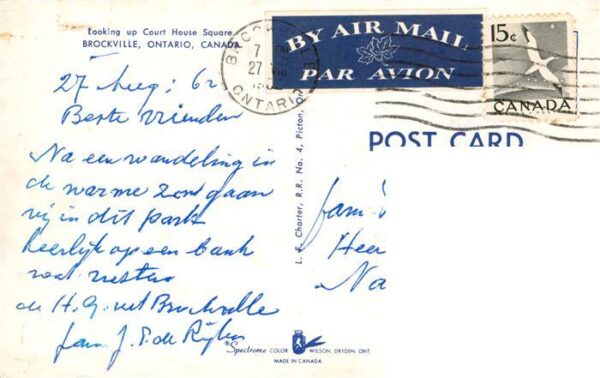 Looking up Court House Square
BROCKVILLE, ONTARIO, CANADA
BY AIR MAIL
PAR AVION
15¢
CANADA
7
27
ONTARIO
POST CARD
27 Aug: 62
Beste vrienden
Na een wandeling in
de warme zon gaan
wij in dit park
heerlijk op een bank
wat rusten
de H.G. uit Brockville
fam. J. P. de
fam.
Heer
Na
L. F. Charter, R.R. No. 4, Picton, Ont
Spectrome COLOR WILSON, DRYDEN, ONT
MADE IN CANADA